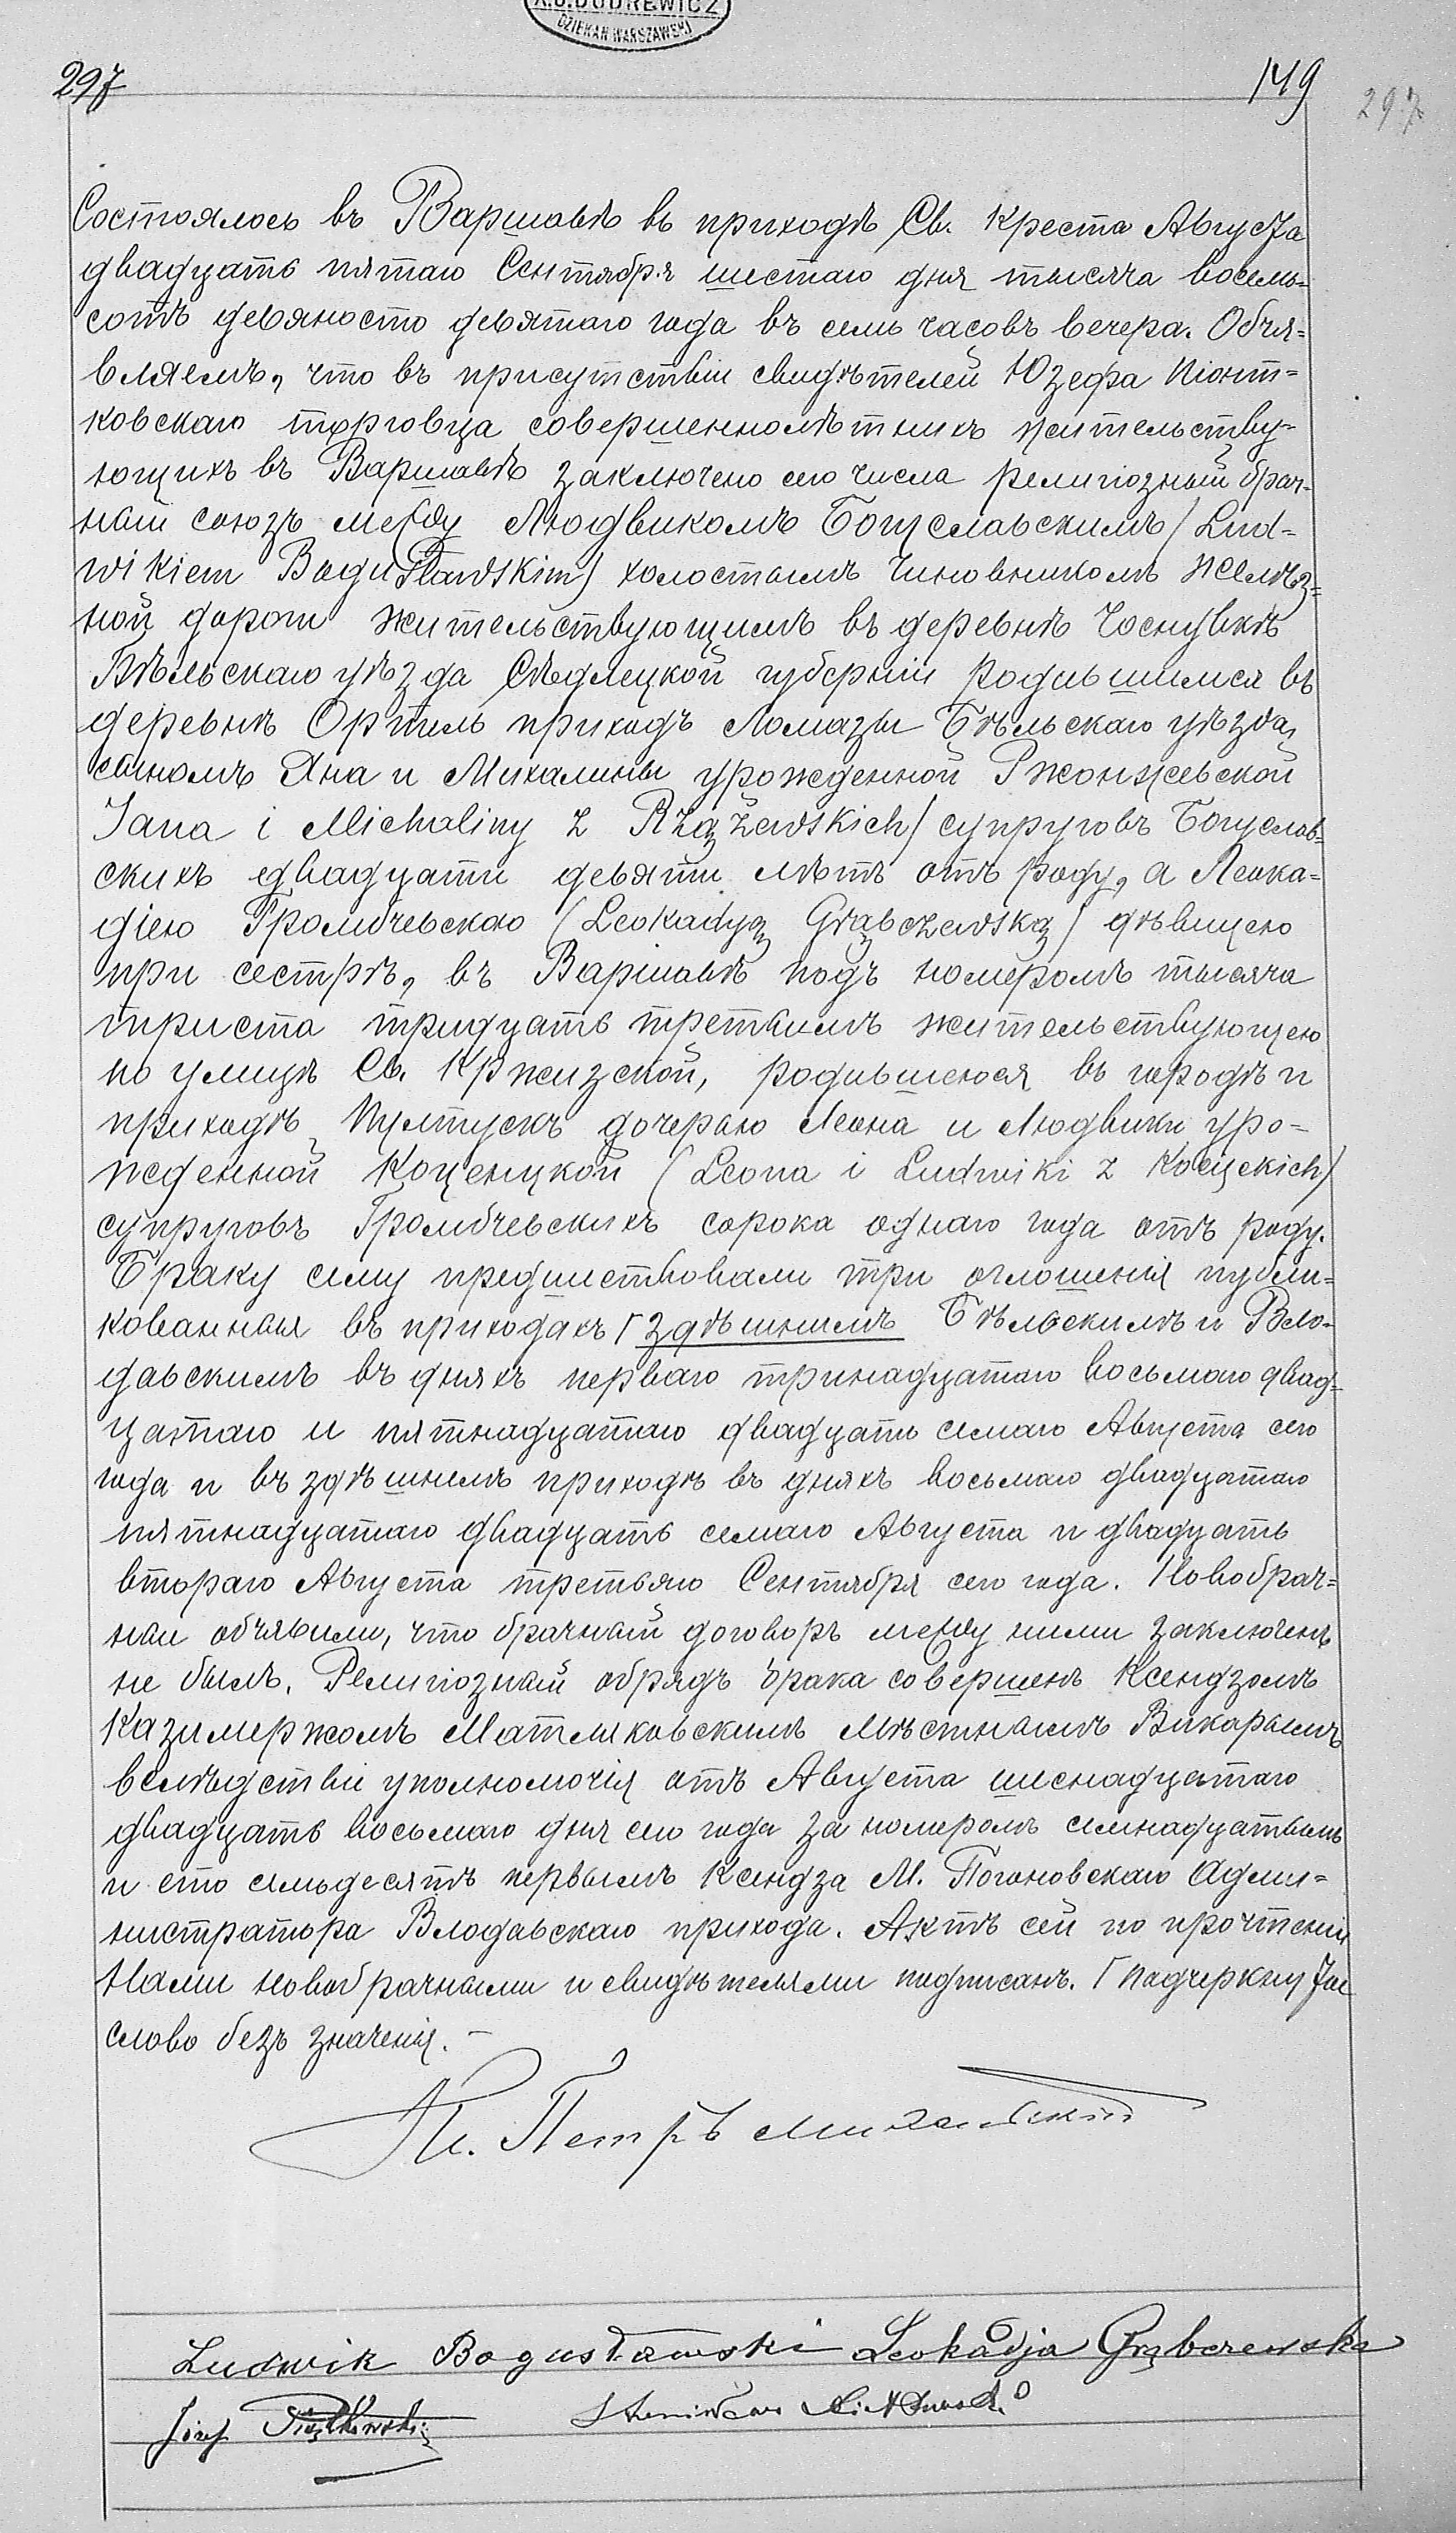 DZIEKAN WARSZAWSKI
297 149 297
Состоялось въ Варшавѣ въ приходѣ Св. Креста Августа
двадцать пятаго Сентября шестаго дня тысяча восемь=
сотъ девяносто девятаго года въ семь часовъ вечера. Объя=
вляемъ, что въ присутствіи свидѣтелей Юзефа Піонт=
ковскаго торговца совершеннолѣтнихъ жительству-
ющихъ въ Варшавѣ заключено сего числа религіозный брач-
ный союзъ между Людвикомъ Богуславскимъ (Lud=
wikiem Bogusławskim) холостымъ чиновникомъ желѣз=
ной дороги жительствующимъ въ деревнѣ Хоснувкѣ
Бѣльскаго уѣзда Сѣдлецкой губерніи родившимся въ
деревнѣ Ортель приходъ Ломазы Бѣльскаго уѣзда,
сыномъ Яна и Михалины урожденной Ржонжевской
Jana i Michaliny z Rząžewskich) супруговъ Богуслав=
скихъ двадцати девяти лѣтъ отъ роду, а Леока=
діею Громбчевскою (Leokadyą Grąbczewską) дѣвицею
при сестрѣ, въ Варшавѣ подъ номеромъ тысяча
триста тридцать третьимъ жительствующею
по улицѣ Св. Кржизской, родившеюся въ городѣ и
приходѣ Пултускъ дочерью Леона и Людвики уро=
жденной Коценцкой (Leona i Ludwiki z Kocięckich)
супруговъ Громбчевскихъ сорока однаго года отъ роду.
Браку сему предшествовали три оглошенія публи=
кованныя въ приходахъ Г здѣшнимъ Бѣльскимъ и Вло-
давскимъ въ дняхъ перваго тринадцатаго восьмаго двад=
цатаго и пятнадцатаго двадцать семаго Августа сего
года и въ здѣшнемъ приходѣ въ дняхъ восьмаго двадцатаго
пятнадцатаго двадцать семаго Августа и двадцать
втораго Августа третьяго Сентября сего года. Новобрач=
ные объявили, что брачный договоръ между ними заключенъ
не былъ. Религіозный обрядъ брака совершенъ Ксендзомъ
Казимержомъ Матляковскимъ Мѣстнымъ Викарымъ
вслѣдствіи уполномочія отъ Августа шеснадцатаго
двадцать восьмаго дня сего года за номеромъ семнадцатымъ
и сто семьдесятъ первымъ Ксендза М. Погоновскаго Адми=
нистратора Влодавскаго прихода. Актъ сей по прочтеніи
Нами новобрачными и свидѣтелями подписанъ. Г Подчеркнутое
слово безъ значенія. –
Петръ
Ludwik Bogusławski Leokadja Grąbczewska
Józef Piątkowski Stanisław